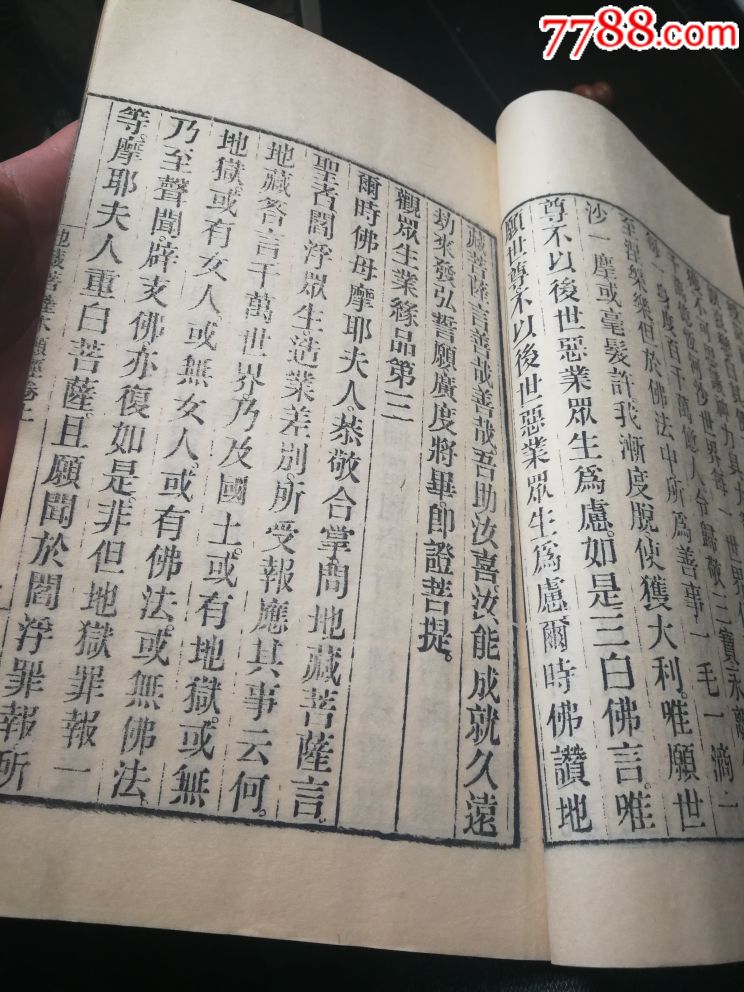 7788.com
每一身度百千萬億人令歸敬三寶永離
至涅槃樂但於佛法中所為善事一毛一滴一
沙一塵或毫髮許我漸度脫使獲大利。唯願世
尊不以後世惡業眾生爲慮。如是三白佛言。唯
願世尊不以後世惡業眾生爲慮爾時佛讚地
藏菩薩言善哉善哉吾助汝喜。汝能成就久遠
劫來發弘誓願廣度將畢。即證菩提。
觀眾生業緣品第三
爾時佛母摩耶夫人。恭敬合掌問地藏菩薩言。
聖者閻浮眾生造業差別。所受報應其事云何。
地藏答言千萬世界乃及國土。或有地獄。或無
地獄或有女人或無女人。或有佛法。或無佛法。
乃至聲聞。辟支佛亦復如是。非但地獄罪報一
等。摩耶夫人重白菩薩。且願聞於閻浮罪報所
地藏菩薩本願經卷上